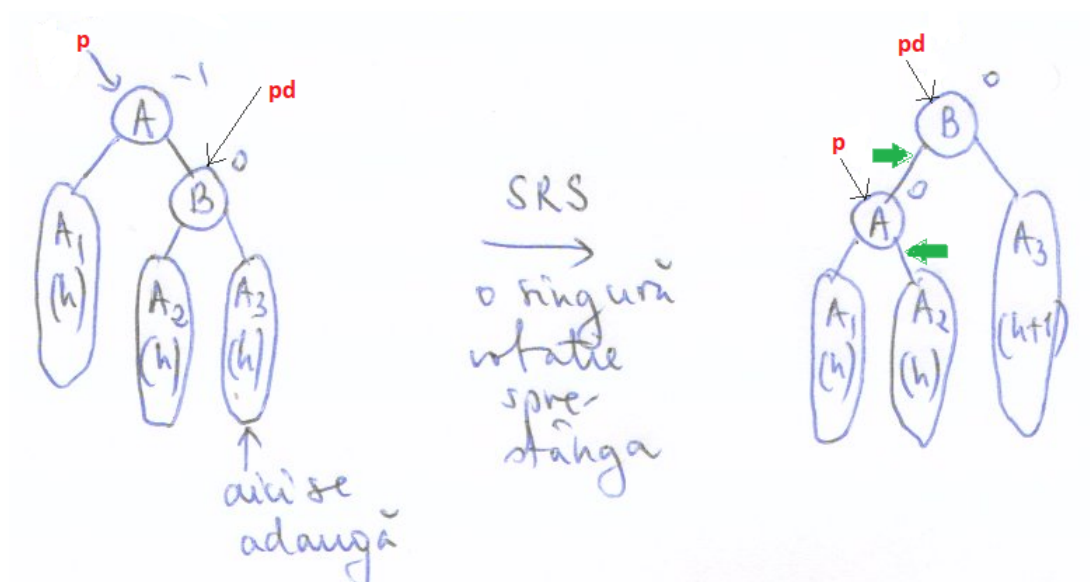 p
-1
A
pd
0
B
A1
(h)
A2
(h)
A3
(h)
aici se
adaugă
SRS
o singură
rotatie
spre-
stânga
pd
0
B
p
0
A
A1
(h)
A2
(h)
A3
(h+1)